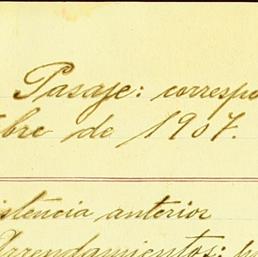 Pasaje: correspo
bre de 1907.
istencia anterior
Arrendamientos: p